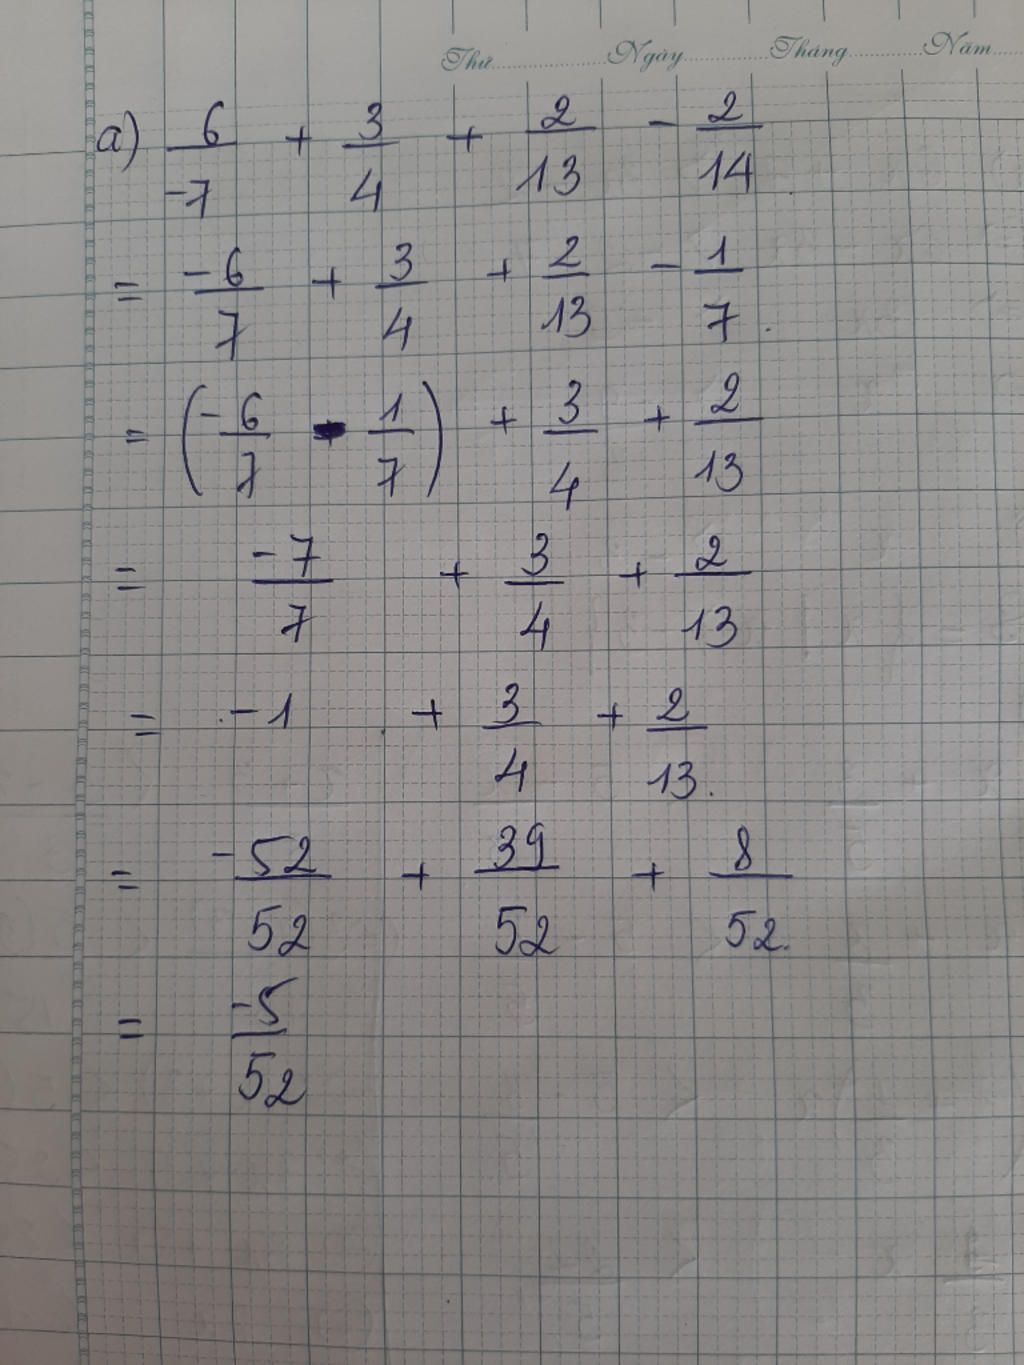 Thứ Ngày Tháng Năm
a) 6/-7 + 3/4 + 2/13 - 2/14
= -6/7 + 3/4 + 2/13 - 1/7
= (-6/7 - 1/7) + 3/4 + 2/13
= -7/7 + 3/4 + 2/13
= -1 + 3/4 + 2/13
= -52/52 + 39/52 + 8/52
= -5/52